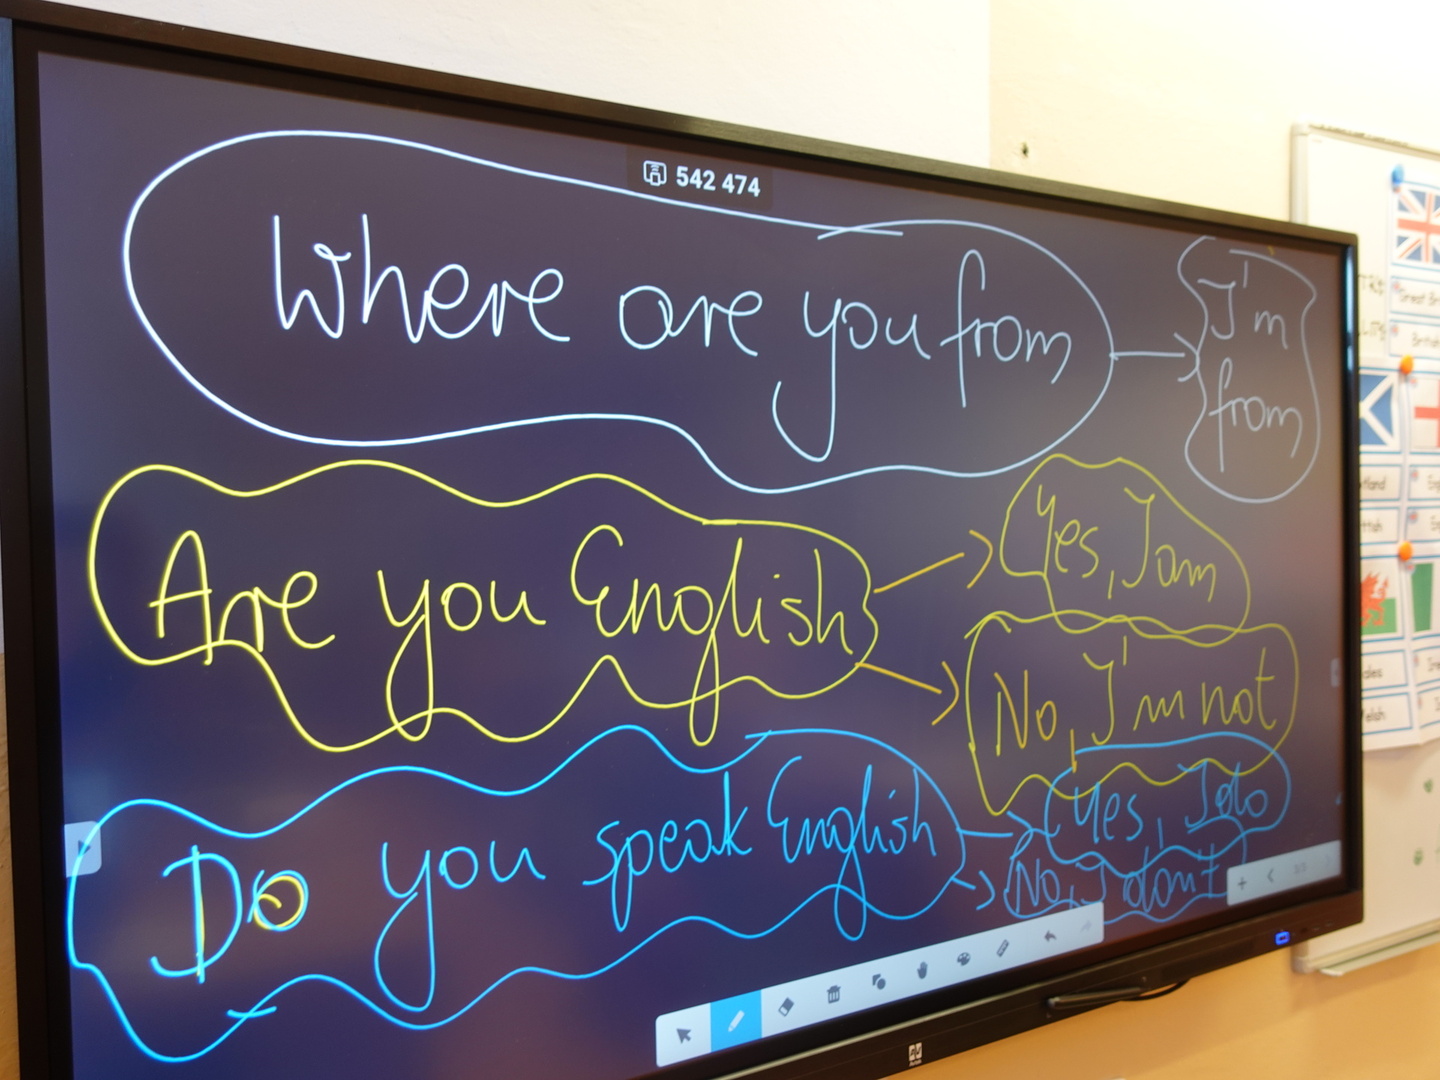 542 474
Where are you from
I'm
from
Are you English
Yes, I am
No, I'm not
Do you speak English
Yes, I do
No, I don't
Great Bri
British